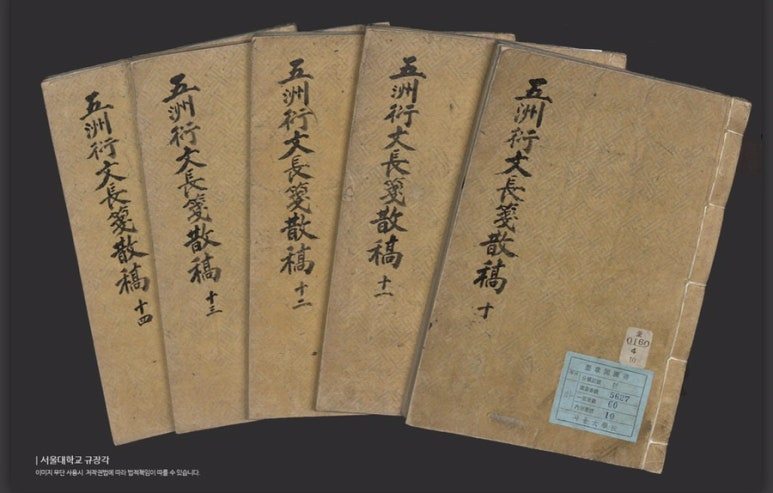 五洲衍文長箋散稿 十四
五洲衍文長箋散稿 十三
五洲衍文長箋散稿 十二
五洲衍文長箋散稿 十一
五洲衍文長箋散稿 十
奎
0160
4
10
奎章閣圖書
5627
60
10
| 서울대학교 규장각
이미지 무단 사용시 저작권법에 따라 법적책임이 따를 수 있습니다.